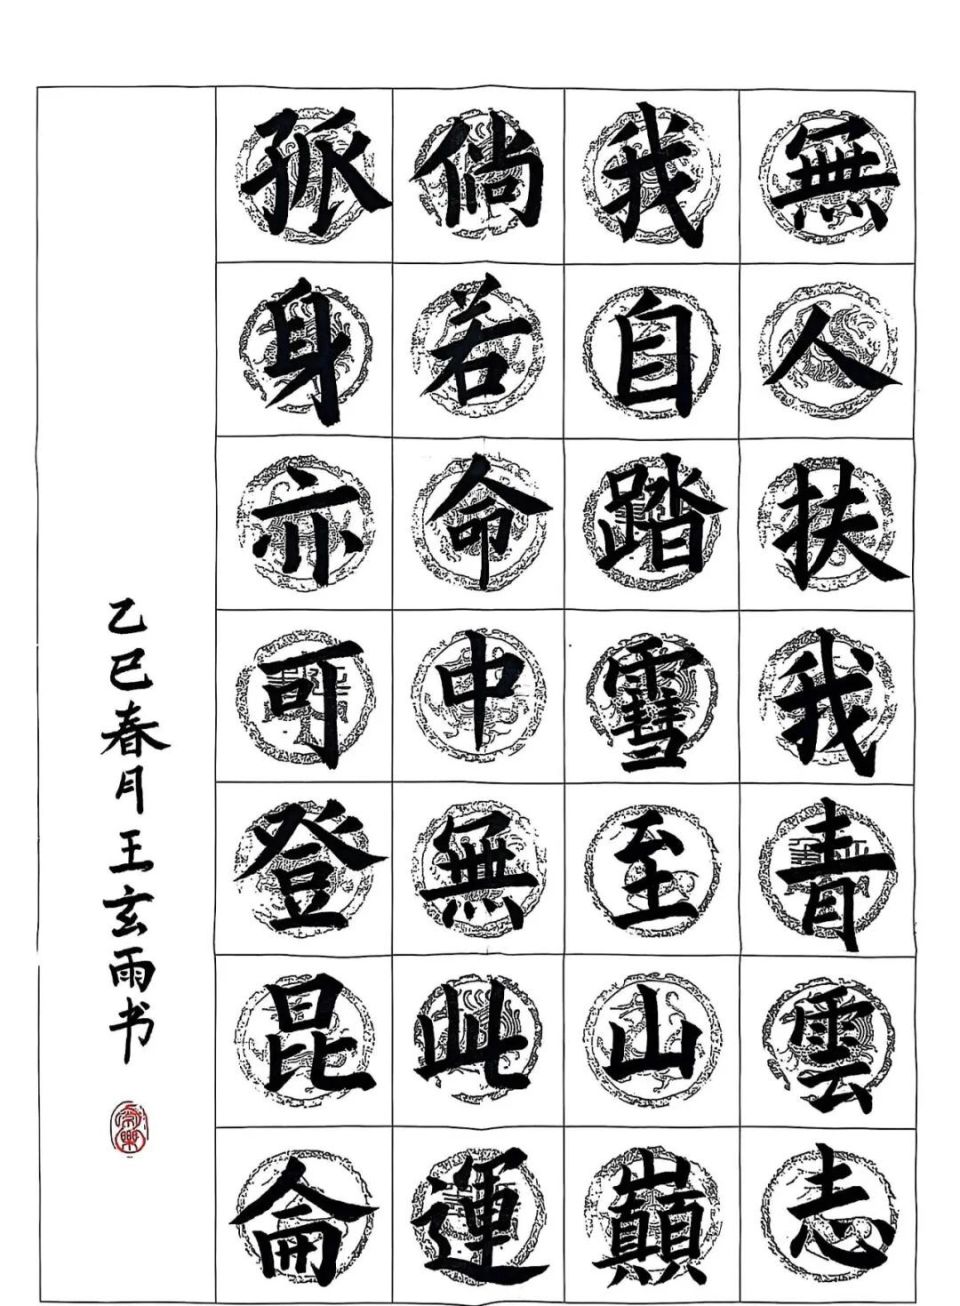 無人扶我青雲志
我自踏雪至山巔
倘若命中無此運
孤身亦可登昆侖
乙巳春月王玄雨书